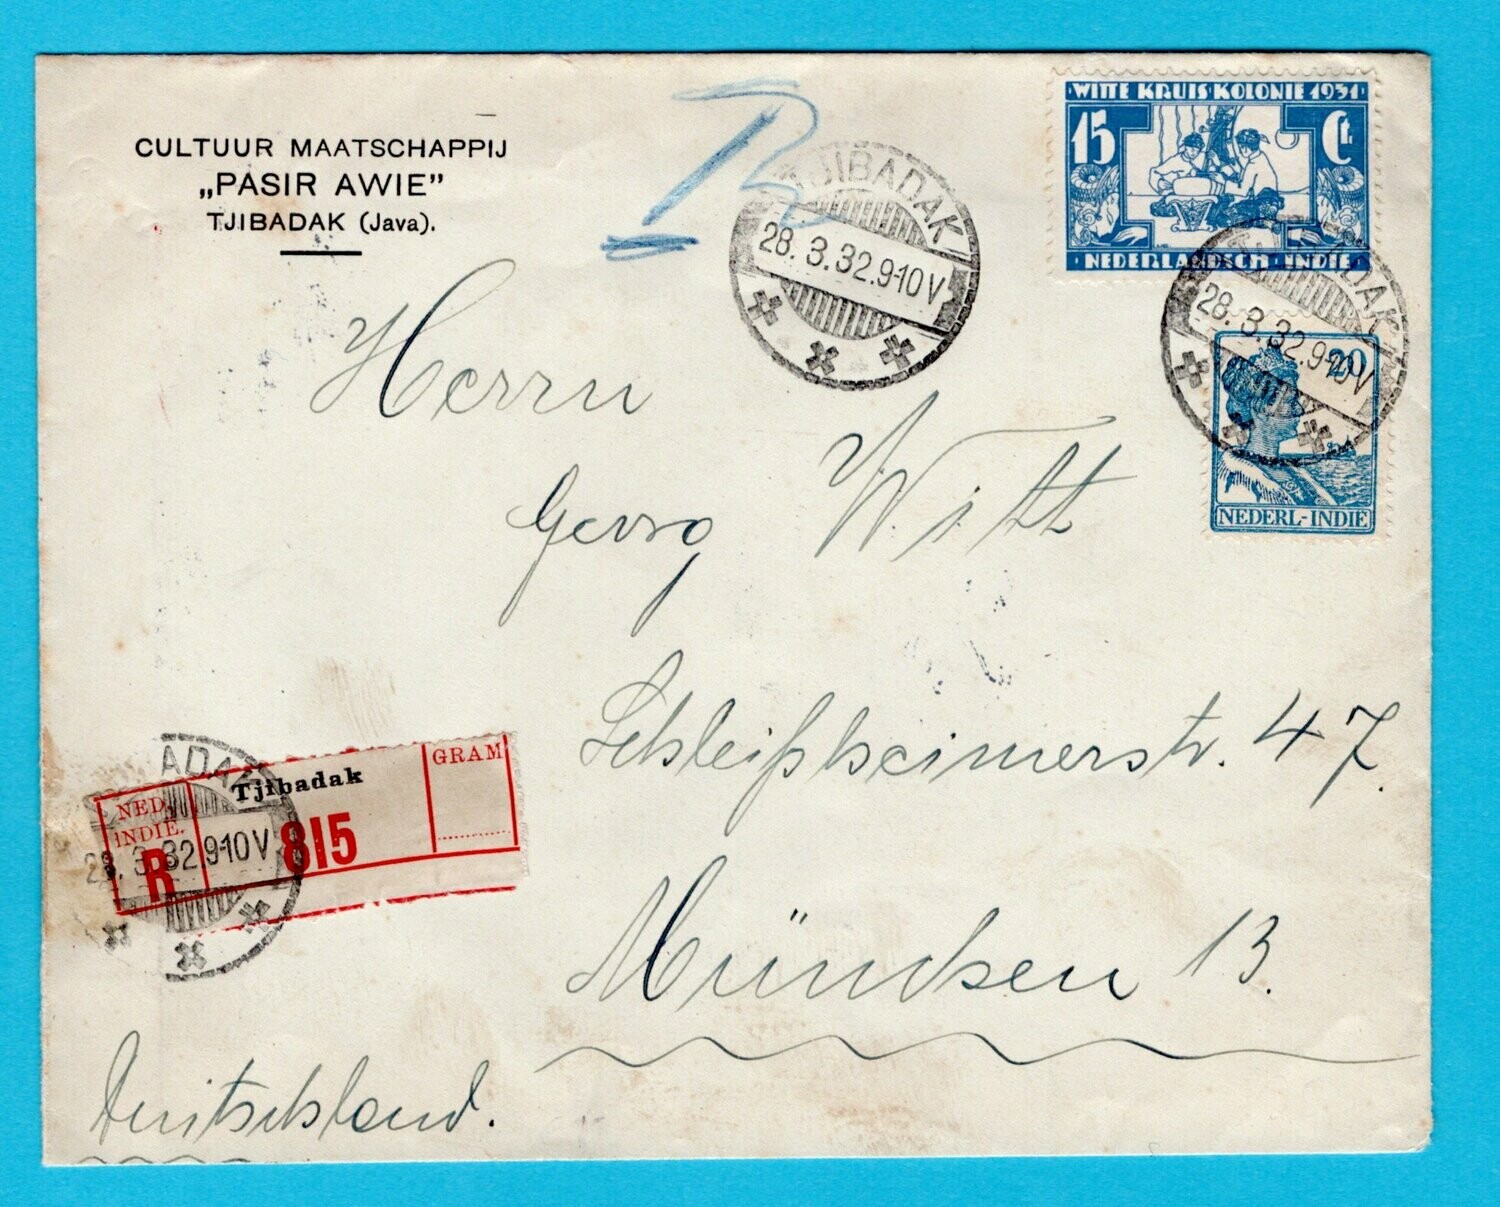 CULTUUR MAATSCHAPPIJ
„PASIR AWIE”
TJIBADAK (Java).
R
TJIBADAK
28. 3.32.9-10V
WITTE KRUIS KOLONIE 1931
15 Ct
NEDERLANDSCH-INDIE
TJIBADAK
28. 3.32.9-10V
20
NEDERL-INDIË
Herrn
Georg Witt
Schleißheimerstr. 47.
München 13.
Deutschland.
NED. INDIE.
R
Tjibadak
815
GRAM
ADAK
28. 3.32.9-10V